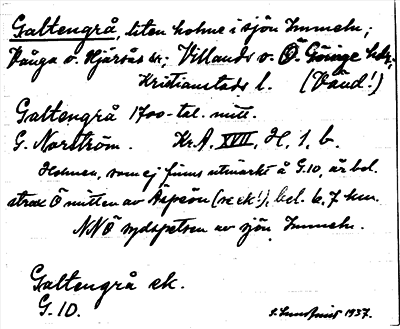 Galtengrå, liten holme i sjön Immeln;
Vånga o. Hjärsås sr; Villands o. Ö. Göinge hdr;
Kristianstads l. (Vänd!)
Galtengrå 1700-tal. mitt.
G. Norström. Kr.A. XVII, H, 1. b.
Holmen, som ej finns utmärkt å G.10, är bel.
strax Ö mitten av Äspeön (se ek!), bel. 6,7 km.
NNÖ sydspetsen av sjön Immeln.
Galtengrå ek.
G. 10.
1937.